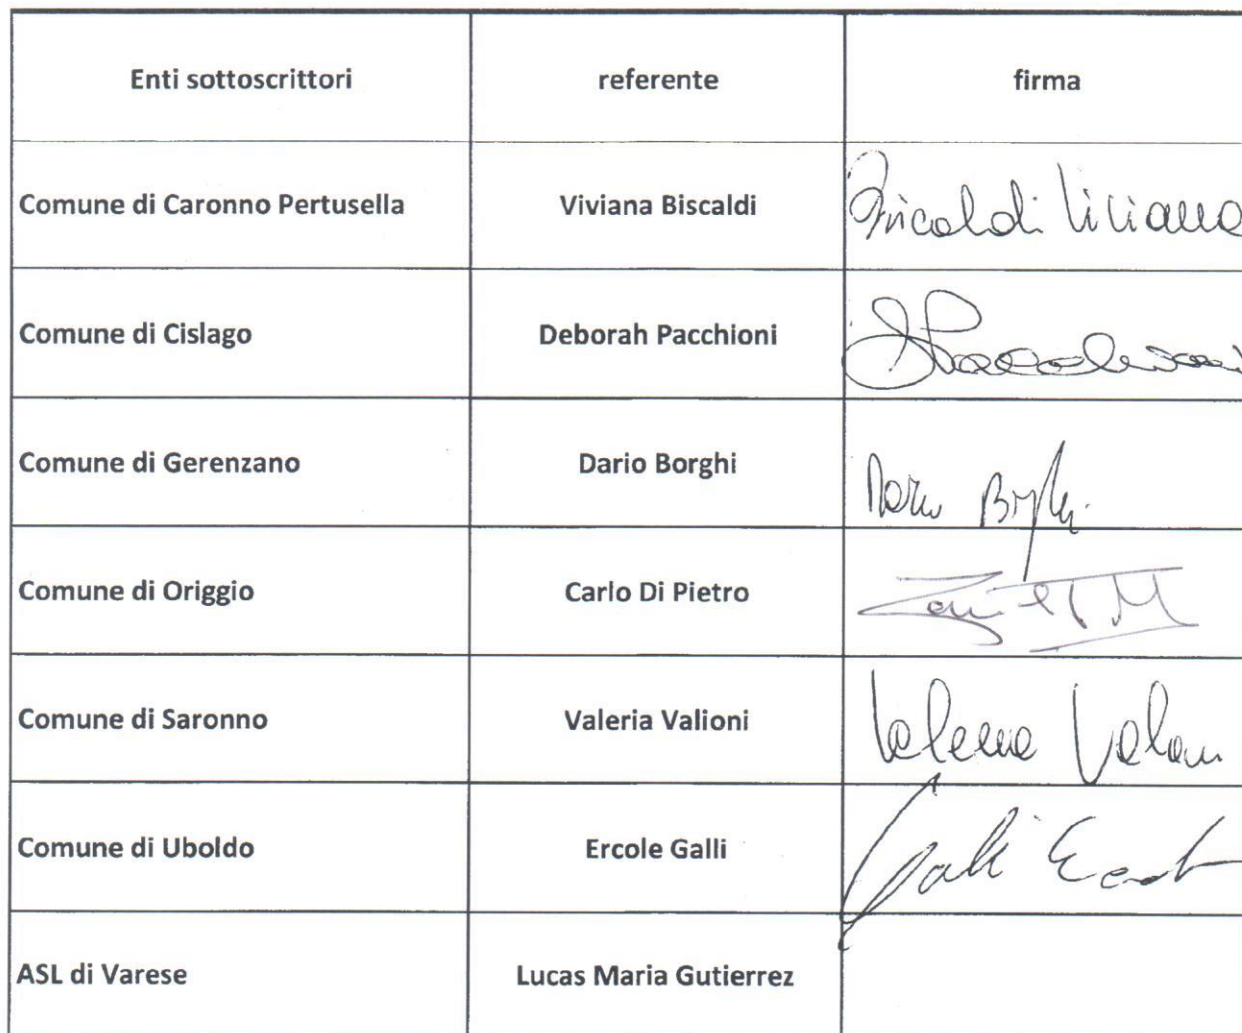 Enti sottoscrittori referente firma
Comune di Caronno Pertusella Viviana Biscaldi Biscaldi Viviana
Comune di Cislago Deborah Pacchioni
Comune di Gerenzano Dario Borghi Dario Borghi
Comune di Origgio Carlo Di Pietro
Comune di Saronno Valeria Valioni Valeria Valioni
Comune di Uboldo Ercole Galli Galli Ercole
ASL di Varese Lucas Maria Gutierrez